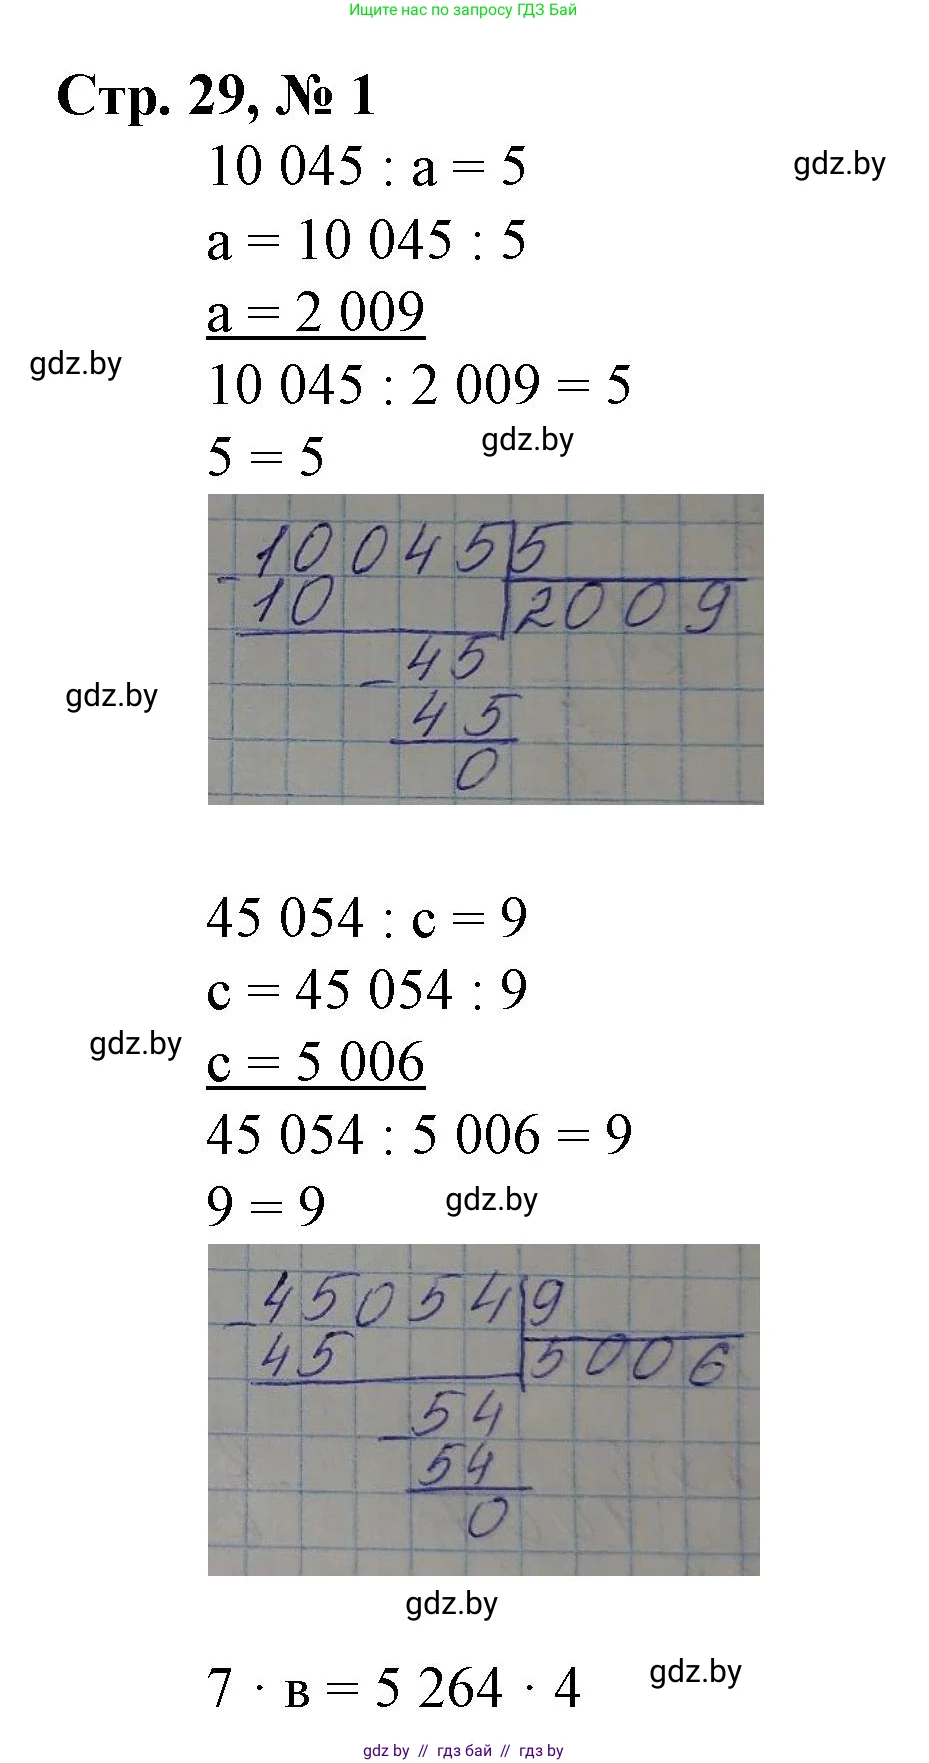 Ищите нас по запросу ГДЗ Бай
Стр. 29, № 1
10 045 : а = 5
gdz.by
а = 10 045 : 5
а = 2 009
gdz.by
10 045 : 2 009 = 5
5 = 5
gdz.by
- 10045 | 5
10 | 2009
- 45
gdz.by
45
0
45 054 : с = 9
с = 45 054 : 9
gdz.by
с = 5 006
45 054 : 5 006 = 9
9 = 9
gdz.by
- 45054 | 9
45 | 5006
- 54
54
0
gdz.by
7 · в = 5 264 · 4
gdz.by
gdz by // гдз бай // гдз by